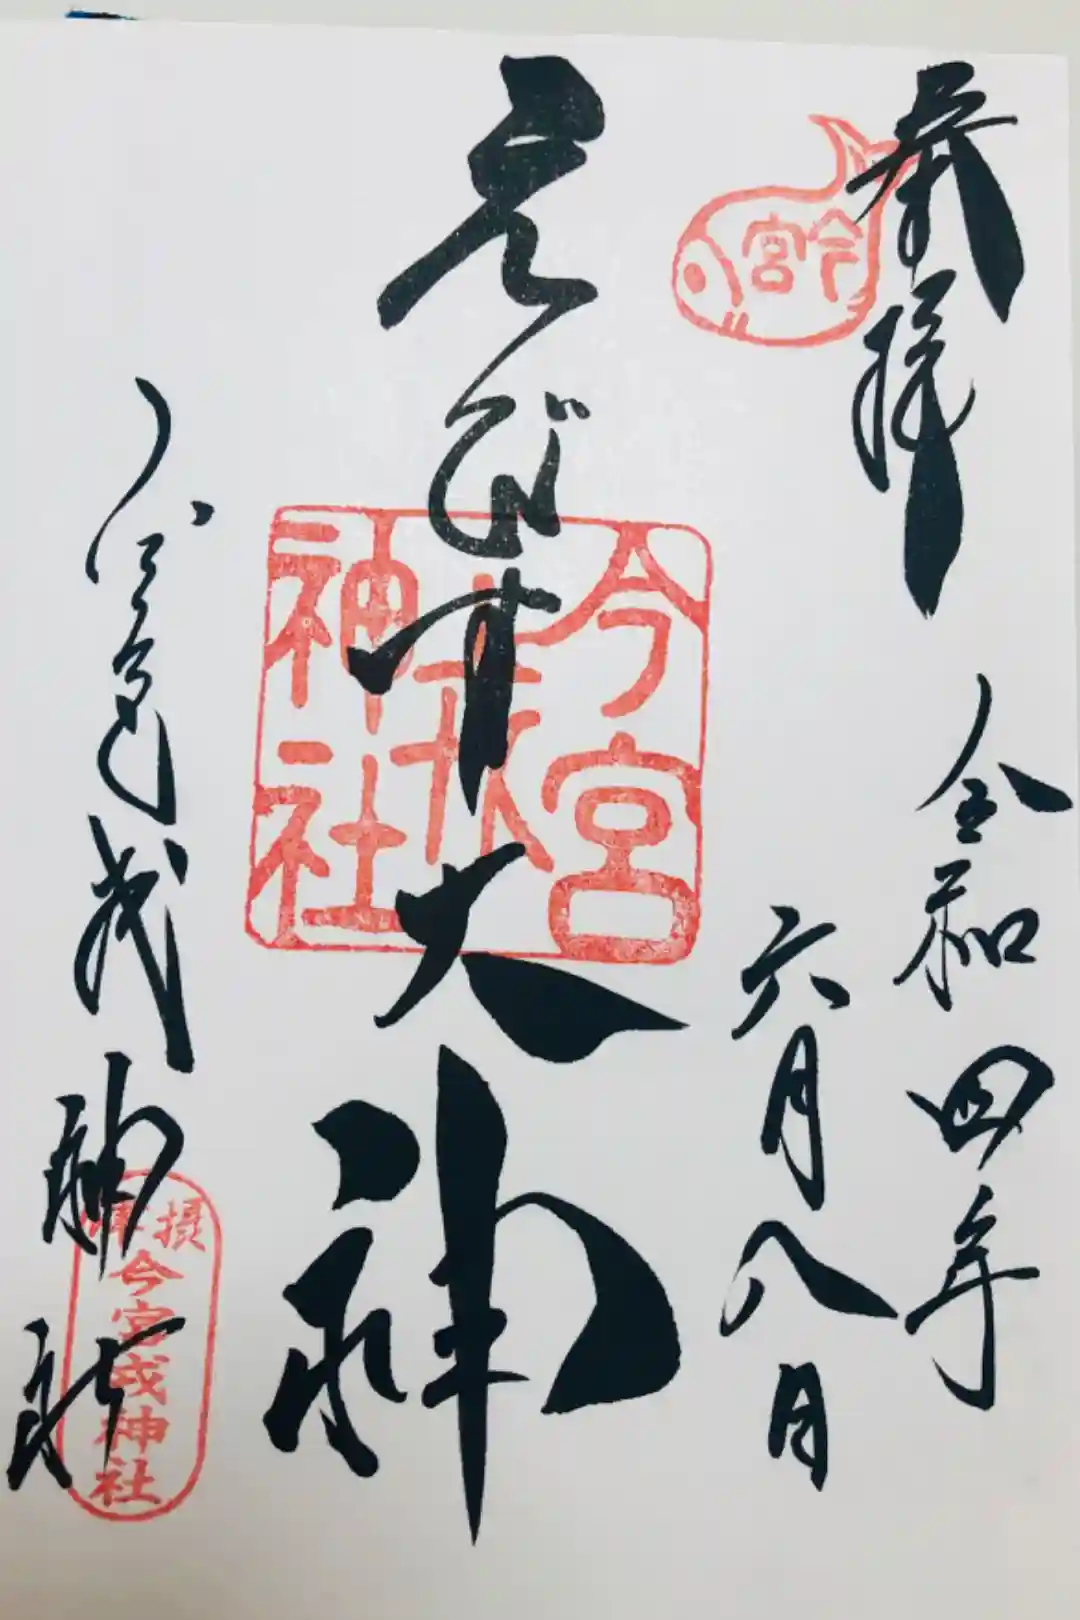 奉拝
令和四年
六月八日
今宮
えびす大神
今宮
戎
神社
今宮戎神社
摂津
今宮戎神社